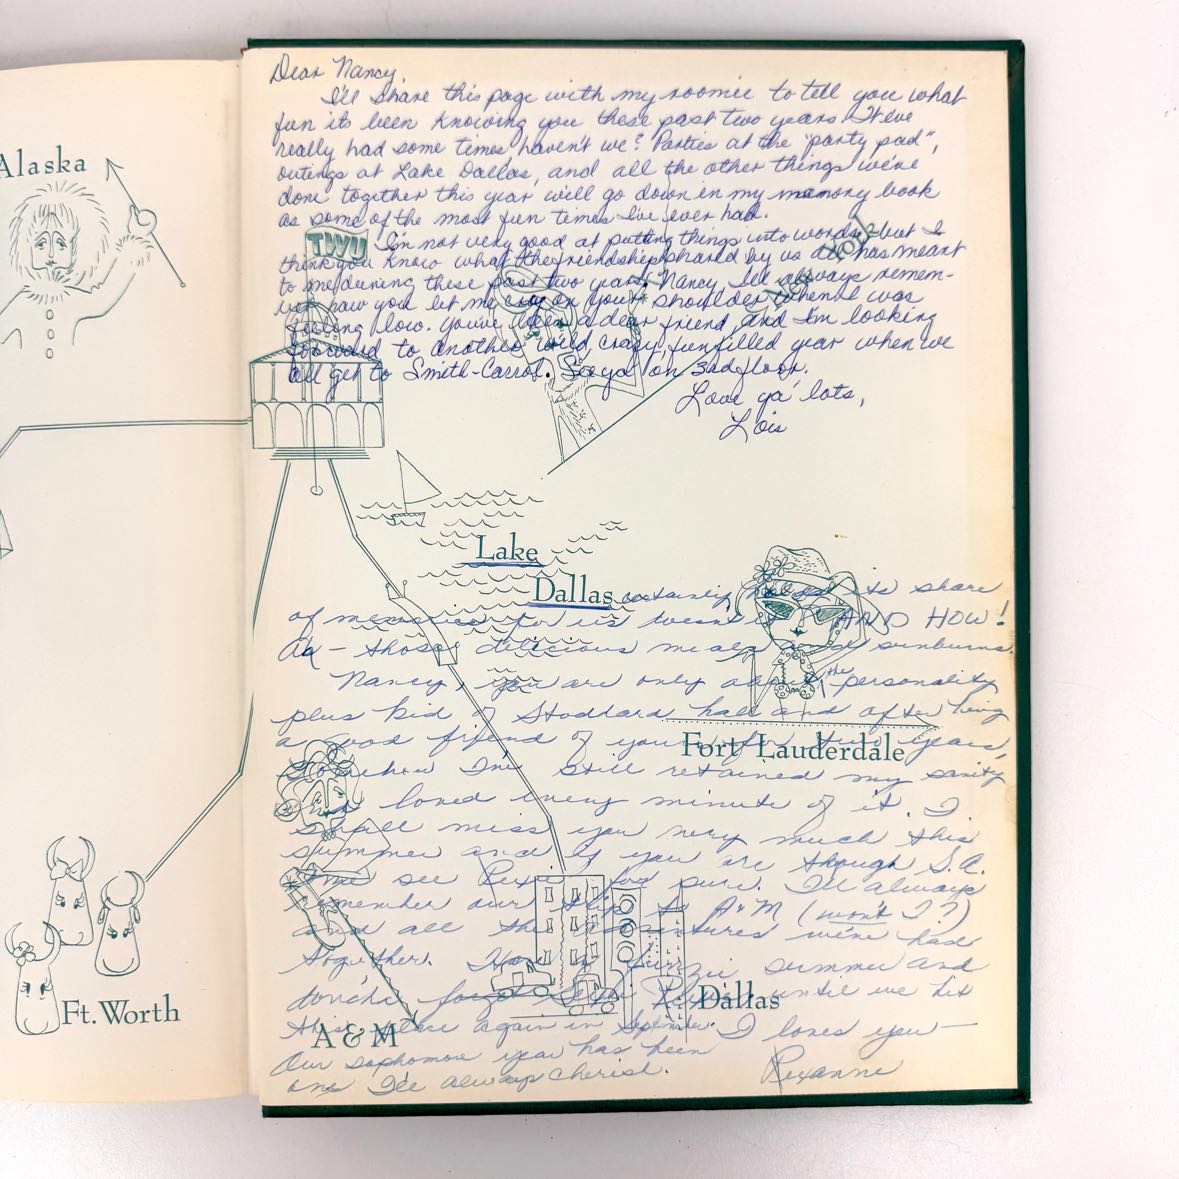 Alaska
Dear Nancy,
I'll share this page with my roomie to tell you what
fun its been knowing you these past two years. We've
really had some times haven't we? Parties at the "party pad",
outings at Lake Dallas, and all the other things we've
done together this year will go down in my memory book
as some of the most fun times I've ever had.
TWU
I'm not very good at putting things into words, but I
think you know what the friendship shared by us all has meant
to me during these past two years. Nancy, I'll always remem-
ber how you let me cry on your shoulder when I was
feeling low. You've been a dear friend and I'm looking
forward to another wild, crazy, funfilled year when we
all get to Smith-Carrol. See ya' on 3rd floor.
Love ya' lots,
Lois
Lake
Dallas certainly its share
of memories for us doesn't it AND HOW!
Ah - those delicious meals and sunburns.
Nancy, you are only the personality
plus kid of Stoddard hall and after being
a good friend of you for two years,
Somehow I've still retained my sanity
and loved every minute of it. I
shall miss you very much this
summer and if you are though S.A.
see for sure. I'll always
remember our trip to A&M (won't I?)
and all the adventures we've had
together. Have a summer and
don't forget until we hit
this place again in September. I loves you—
Our sophomore year has been
one I'll always cherish.
Roxanne
Fort Lauderdale
Ft. Worth
A & M
Dallas